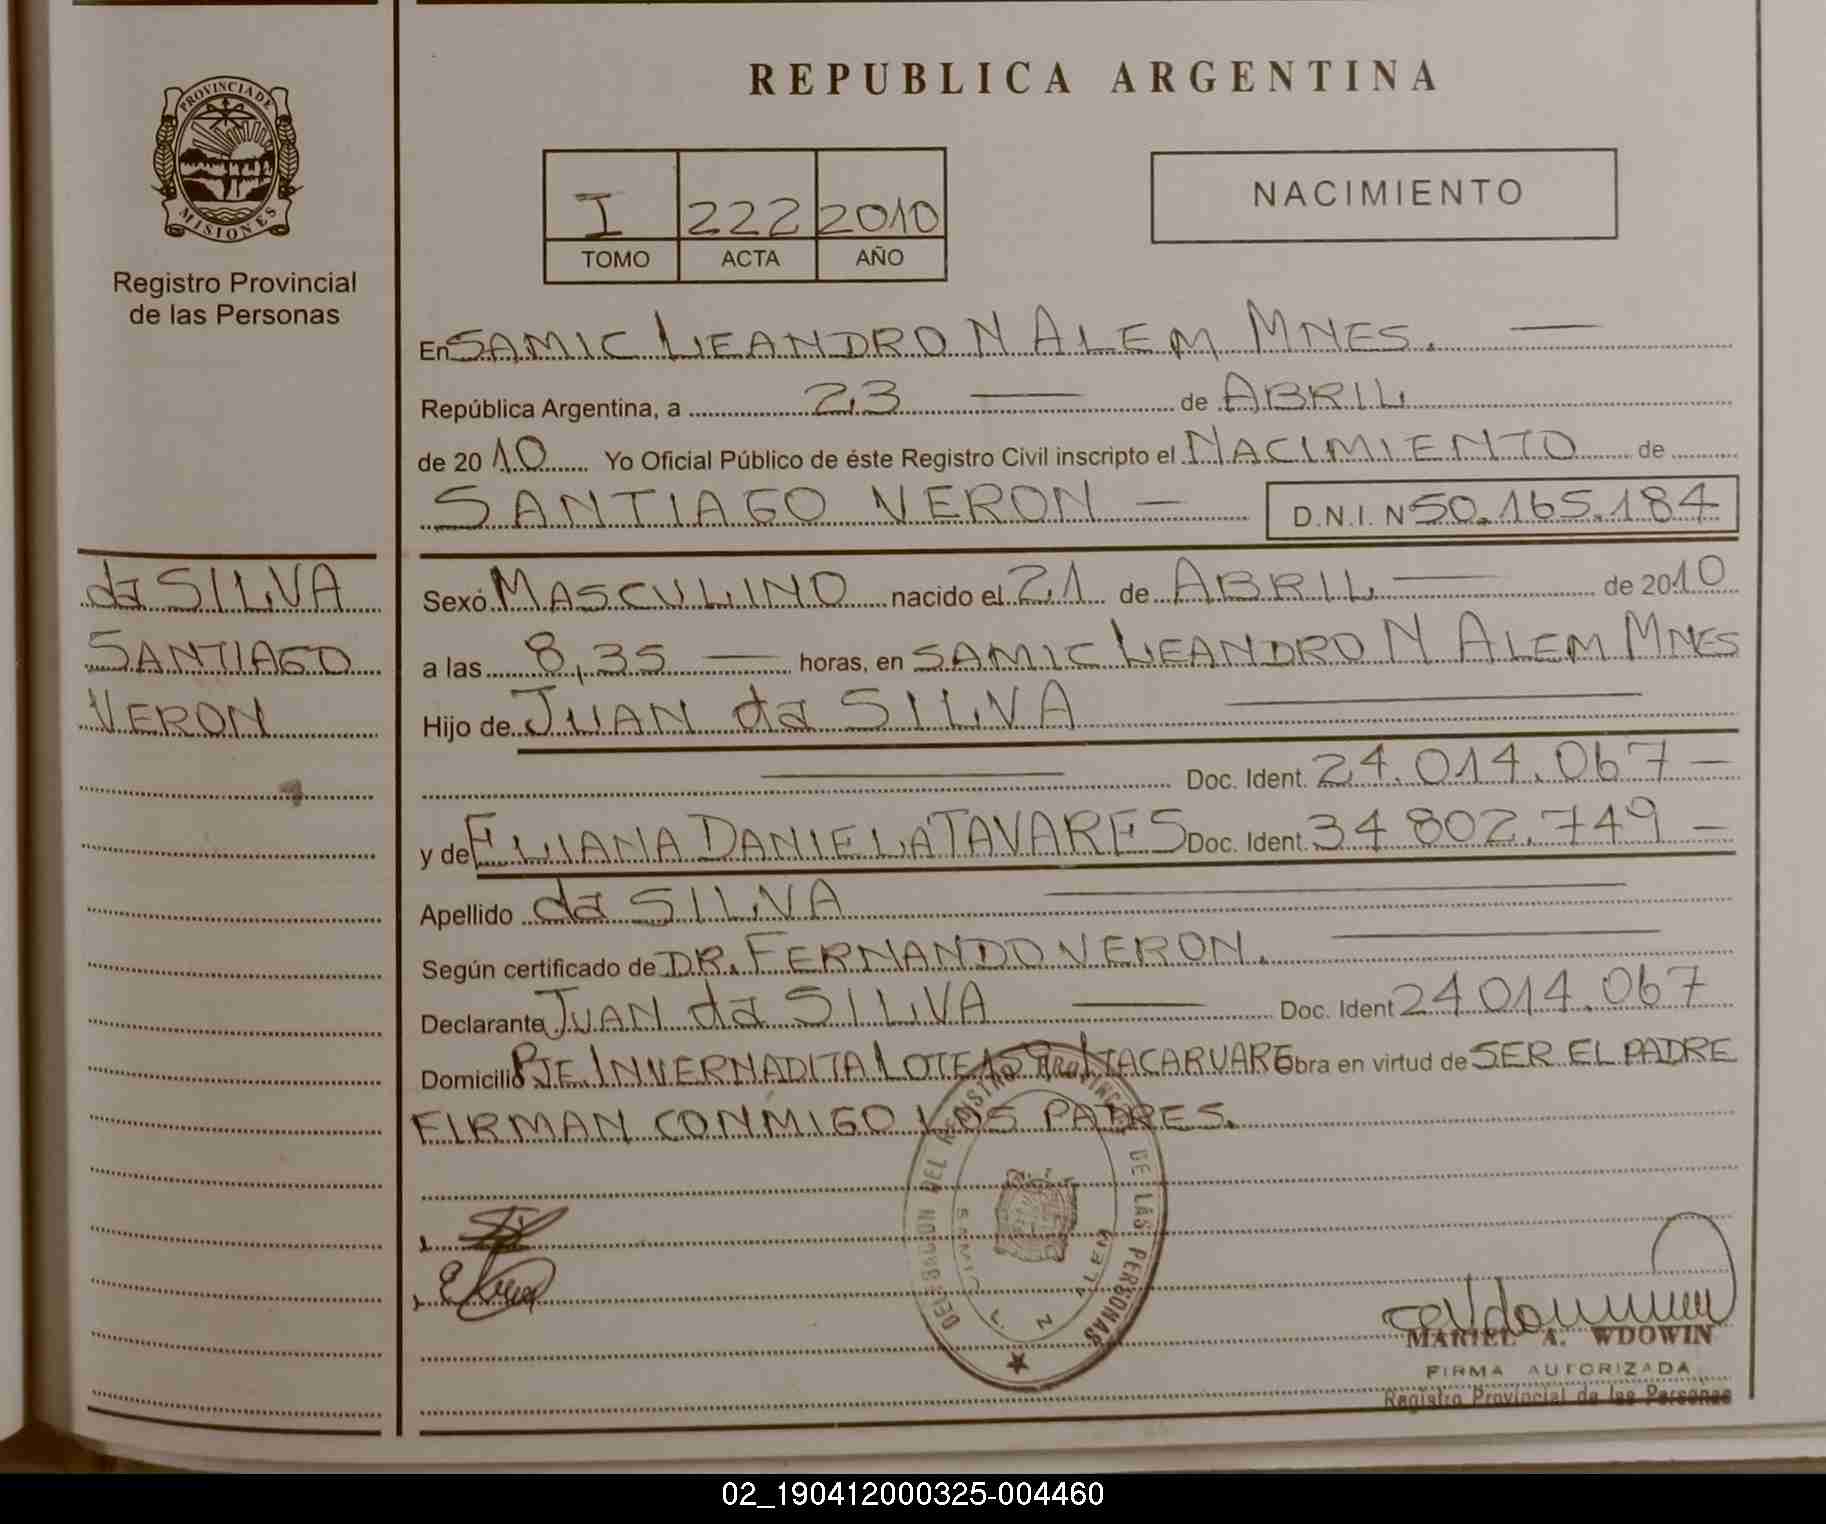 PROVINCIA DE
MISIONES
Registro Provincial
de las Personas
REPUBLICA ARGENTINA
I 222 2010
TOMO ACTA AÑO
NACIMIENTO
En SAMIC LEANDRO N ALEM MNES.
República Argentina, a 23 de ABRIL
de 2010 Yo Oficial Público de éste Registro Civil inscripto el NACIMIENTO de
SANTIAGO VERON D.N.I. N 50.165.184
da SILVA
SANTIAGO
VERON
Sexó MASCULINO nacido el 21 de ABRIL de 2010
a las 8,35 horas, en SAMIC LEANDRO N ALEM MNES
Hijo de JUAN da SILVA
Doc. Ident. 24.014.067
y de ELIANA DANIELA TAVARES Doc. Ident. 34 802.749
Apellido da SILVA
Según certificado de DR. FERNANDO VERON.
Declarante JUAN da SILVA Doc. Ident 24.014.067
Domicilio PJE. INVERNADITA LOTE ITACARUARE Obra en virtud de SER EL PADRE
FIRMAN CONMIGO LOS PADRES.
DEL REGISTRO PROVINCIAL DE LAS PERSONAS
SAMIC L. N. ALEM
MARIEL A. WDOWIN
FIRMA AUTORIZADA
Registro Provincial de las Personas
02_190412000325-004460